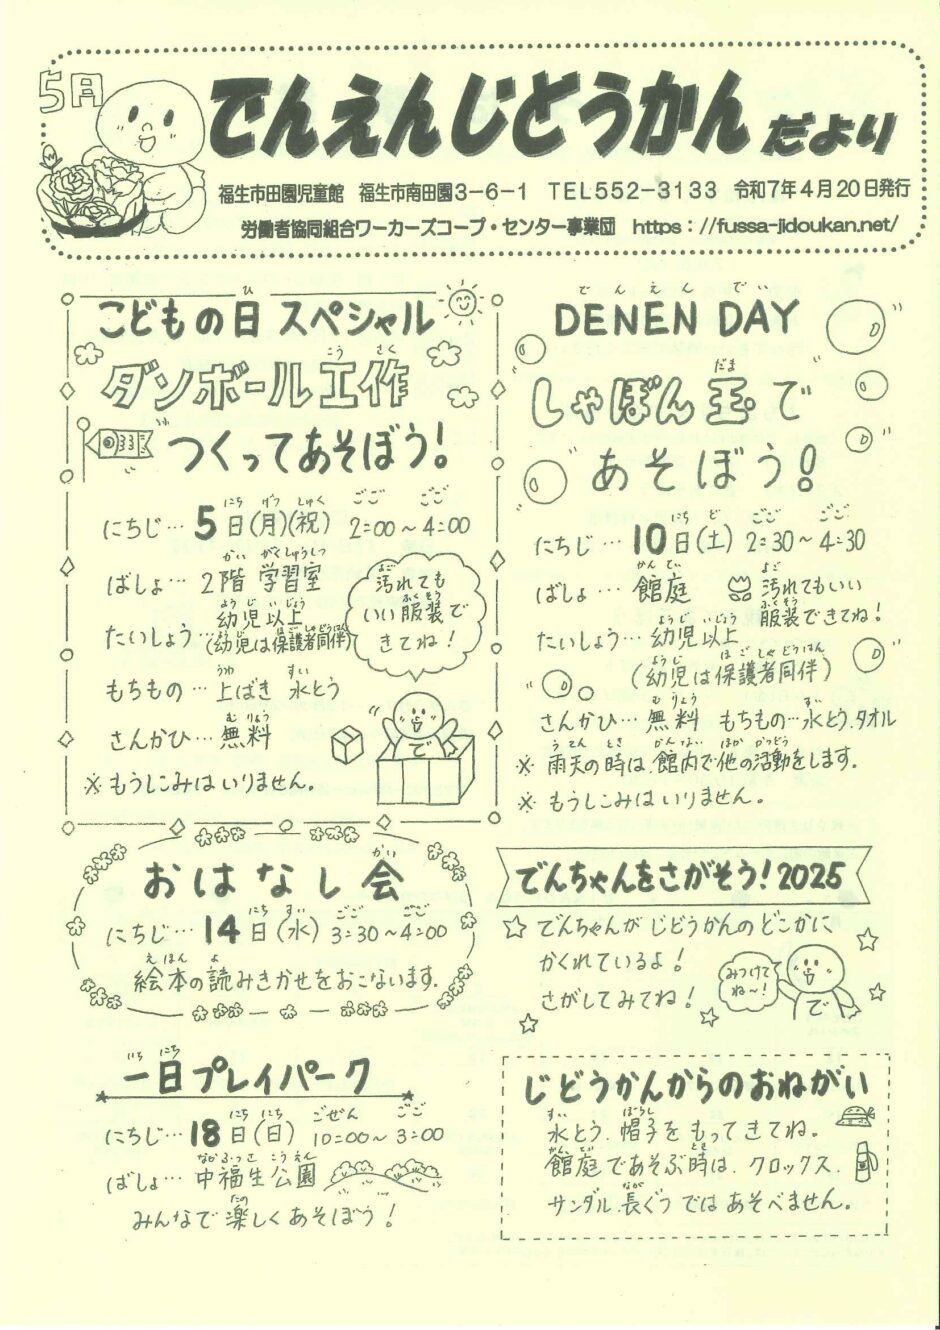 5月
でんえんじどうかん だより
福生市田園児童館 福生市南田園3-6-1 TEL552-3133 令和7年4月20日発行
労働者協同組合ワーカーズコープ・センター事業団 https://fussa-jidoukan.net/
こどもの日 スペシャル
ダンボール工作
つくってあそぼう!
にちじ…5日(月)(祝) 2:00~4:00
ばしょ…2階 学習室
たいしょう…幼児以上
(幼児は保護者同伴)
もちもの…上ばき 水とう
さんかひ…無料
※もうしこみはいりません。
汚れても
いい服装で
きてね!
で
DENEN DAY
しゃぼん玉で
あそぼう!
にちじ…10日(土) 2:30~4:30
ばしょ…館庭
汚れてもいい
服装できてね!
たいしょう…幼児以上
(幼児は保護者同伴)
さんかひ…無料 もちもの…水とう.タオル
※雨天の時は.館内で他の活動をします.
※もうしこみはいりません。
おはなし会
にちじ…14日(水) 3:30~4:00
絵本の読みきかせをおこないます.
でんちゃんをさがそう!2025
☆でんちゃんがじどうかんのどこかに
かくれているよ!
さがしてみてね!
みつけて
ね~!
で
一日プレイパーク
にちじ…18日(日) 10:00~3:00
ばしょ…中福生公園
みんなで楽しくあそぼう!
じどうかんからのおねがい
水とう.帽子をもってきてね。
館庭であそぶ時は.クロックス.
サンダル.長ぐつではあそべません。